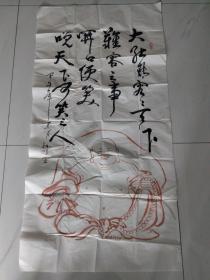 大肚能容〻天下
難容之事
開口便笑
咲天下可笑之人